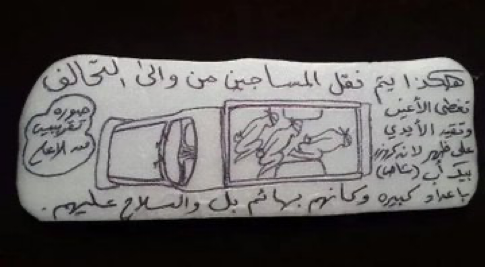 هكذا يتم نقل المساجين من وإلى التحالف
تغطى الأعين
وتقيد الأيدي
على ظهور لاندكروزر
بيك أب (شاص)
صوره
تقريبيه
من الاعلى
باعداد كبيره وكأنهم بهائم بل والسلاح عليهم.